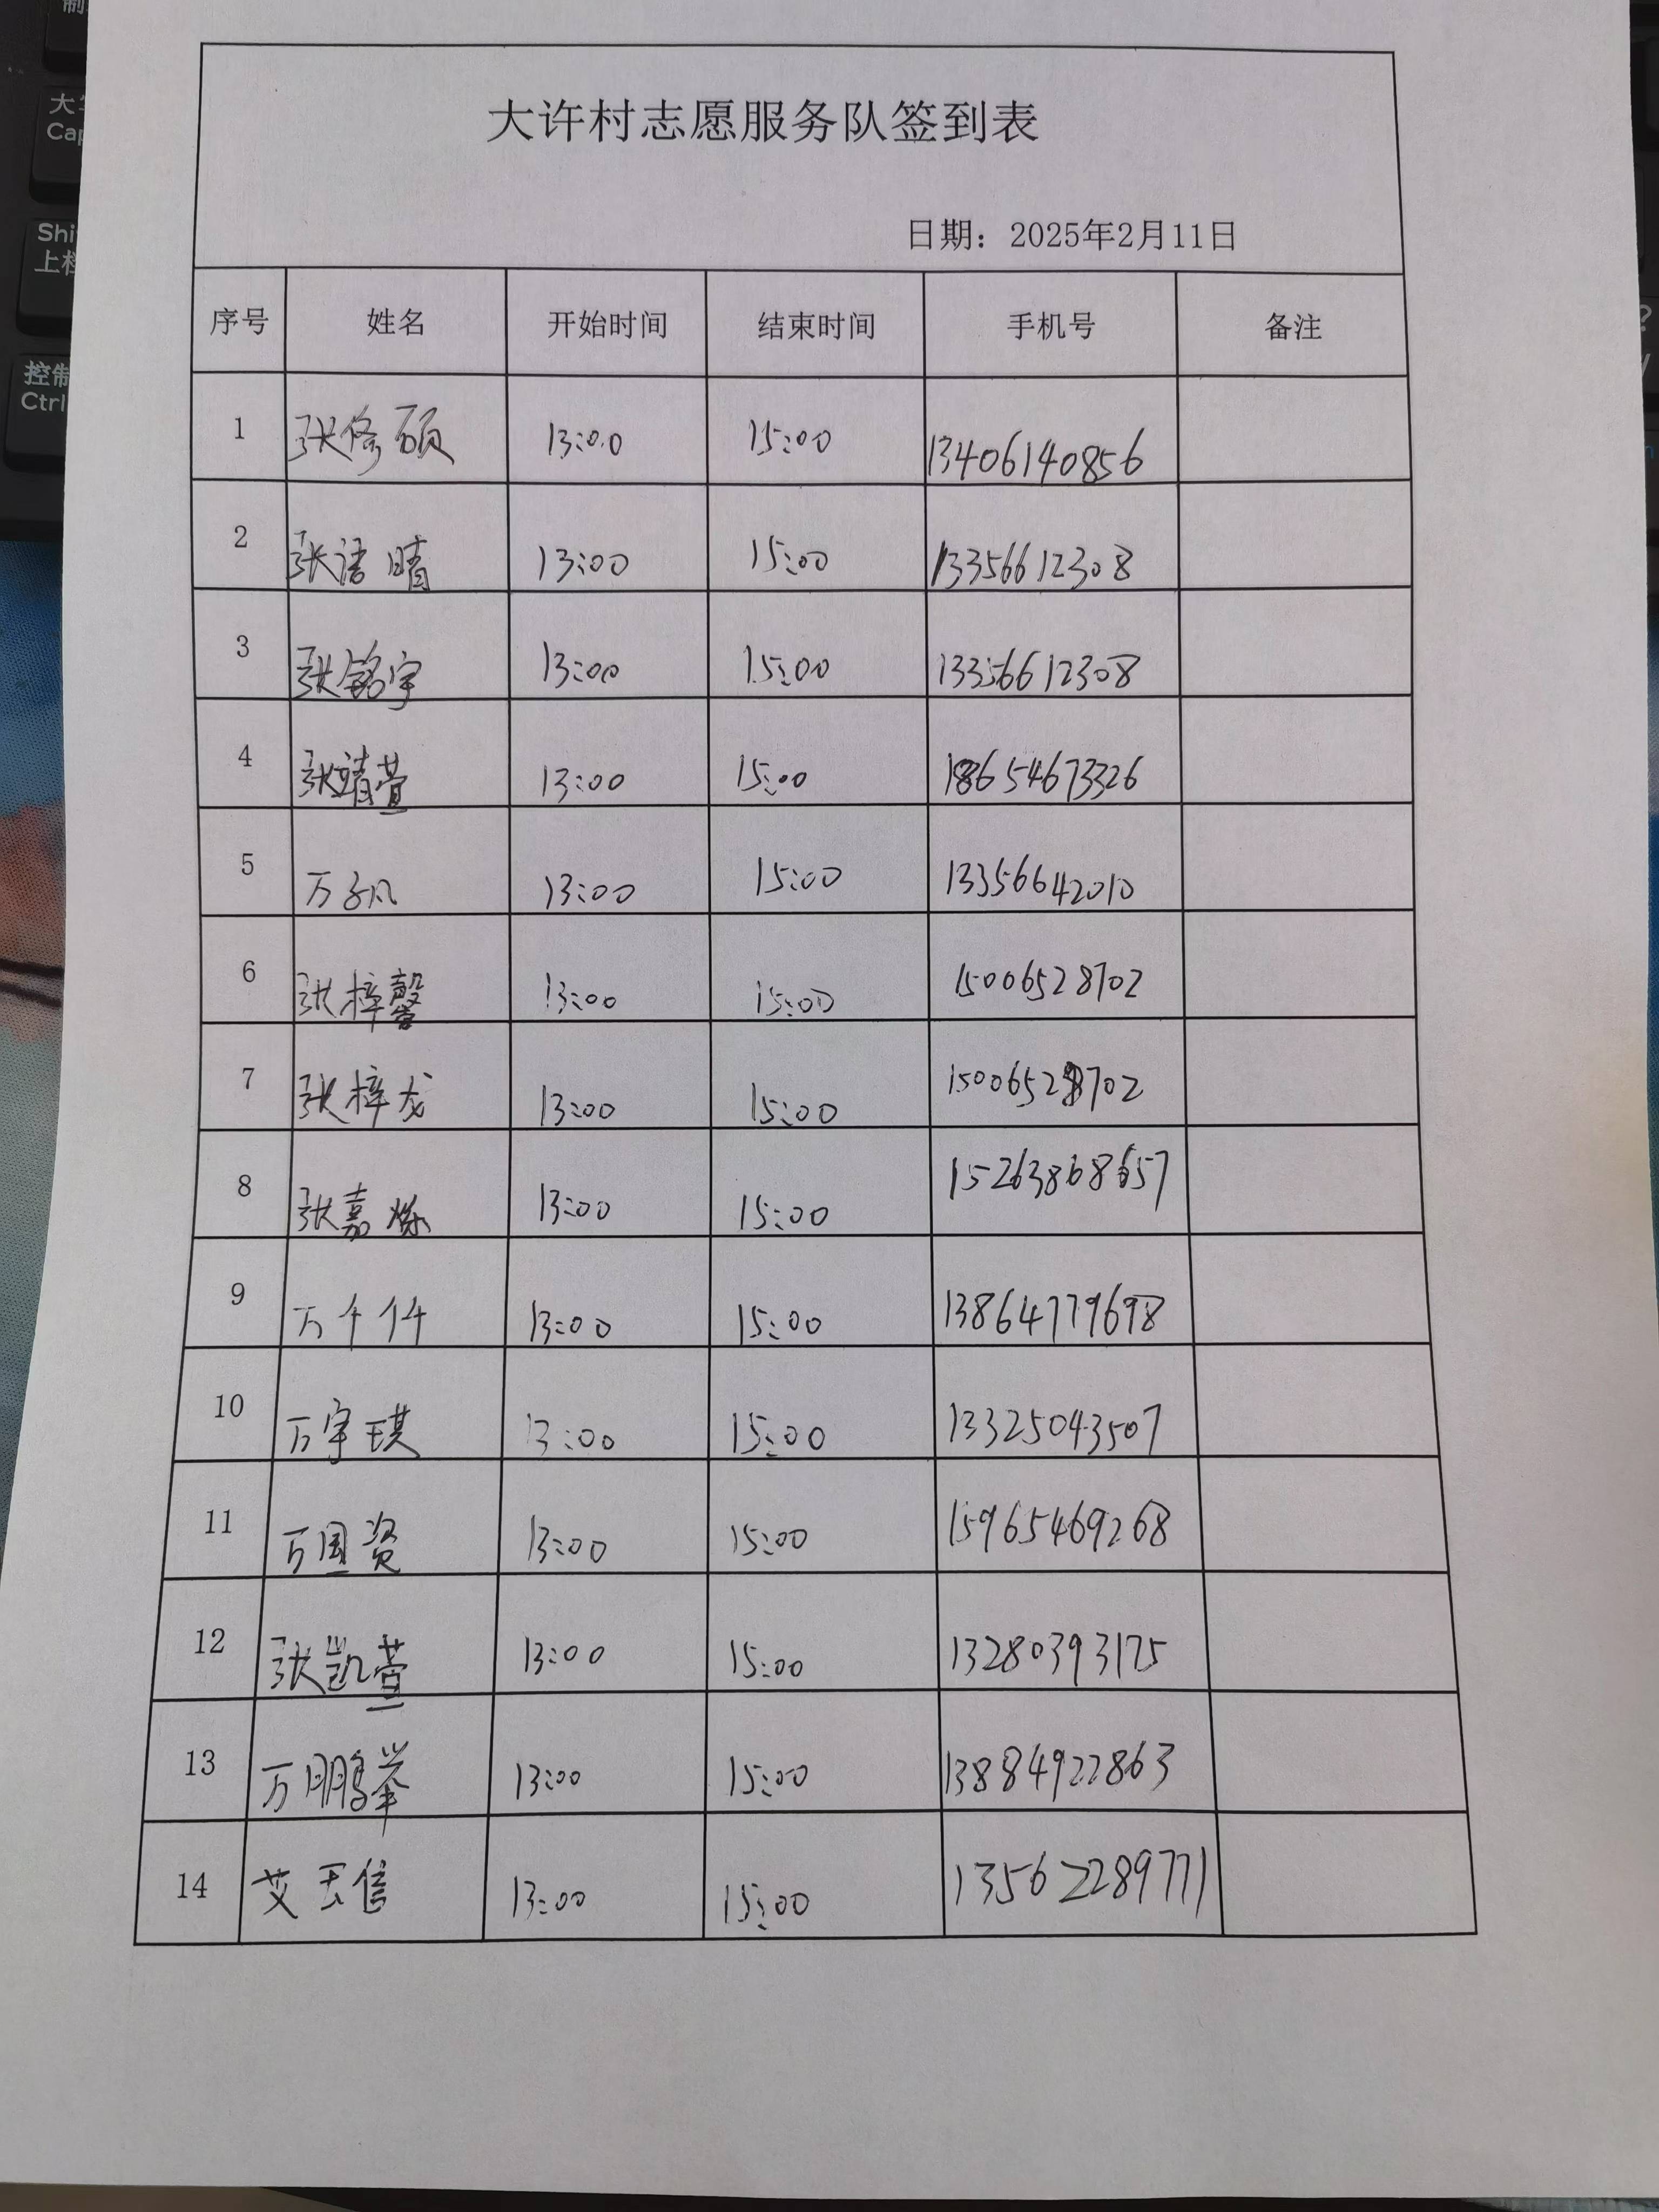 大许村志愿服务队签到表
日期：2025年2月11日
序号 姓名 开始时间 结束时间 手机号 备注
1 张修硕 13:00 15:00 13406140856
2 张语晴 13:00 15:00 13356612308
3 张铭宇 13:00 15:00 13356612308
4 张靖萱 13:00 15:00 18654673326
5 万子凡 13:00 15:00 13356642010
6 张梓馨 13:00 15:00 15006528702
7 张梓龙 13:00 15:00 15006528702
8 张嘉烁 13:00 15:00 15263868657
9 万千仟 13:00 15:00 13864779698
10 万宇琪 13:00 15:00 13325043507
11 万国资 13:00 15:00 15965469268
12 张凯萱 13:00 15:00 13280393175
13 万鹏举 13:00 15:00 13884922863
14 艾玉信 13:00 15:00 13562289771
大
Cap
Shi
上档
控制
Ctrl
制
?
/